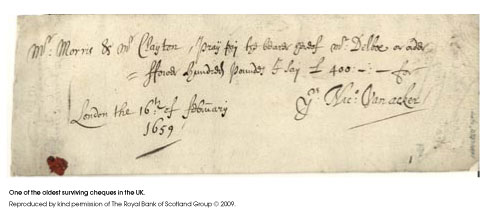 Mr. Morris & Mr. Clayton, Pray pay the bearer hereof Mr. Delboe or order
ffower hundred Poundes I say £ 400:-:- for
Yrs Nic: Vanacker
London the 16th of february
1659
One of the oldest surviving cheques in the UK.
Reproduced by kind permission of The Royal Bank of Scotland Group © 2009.